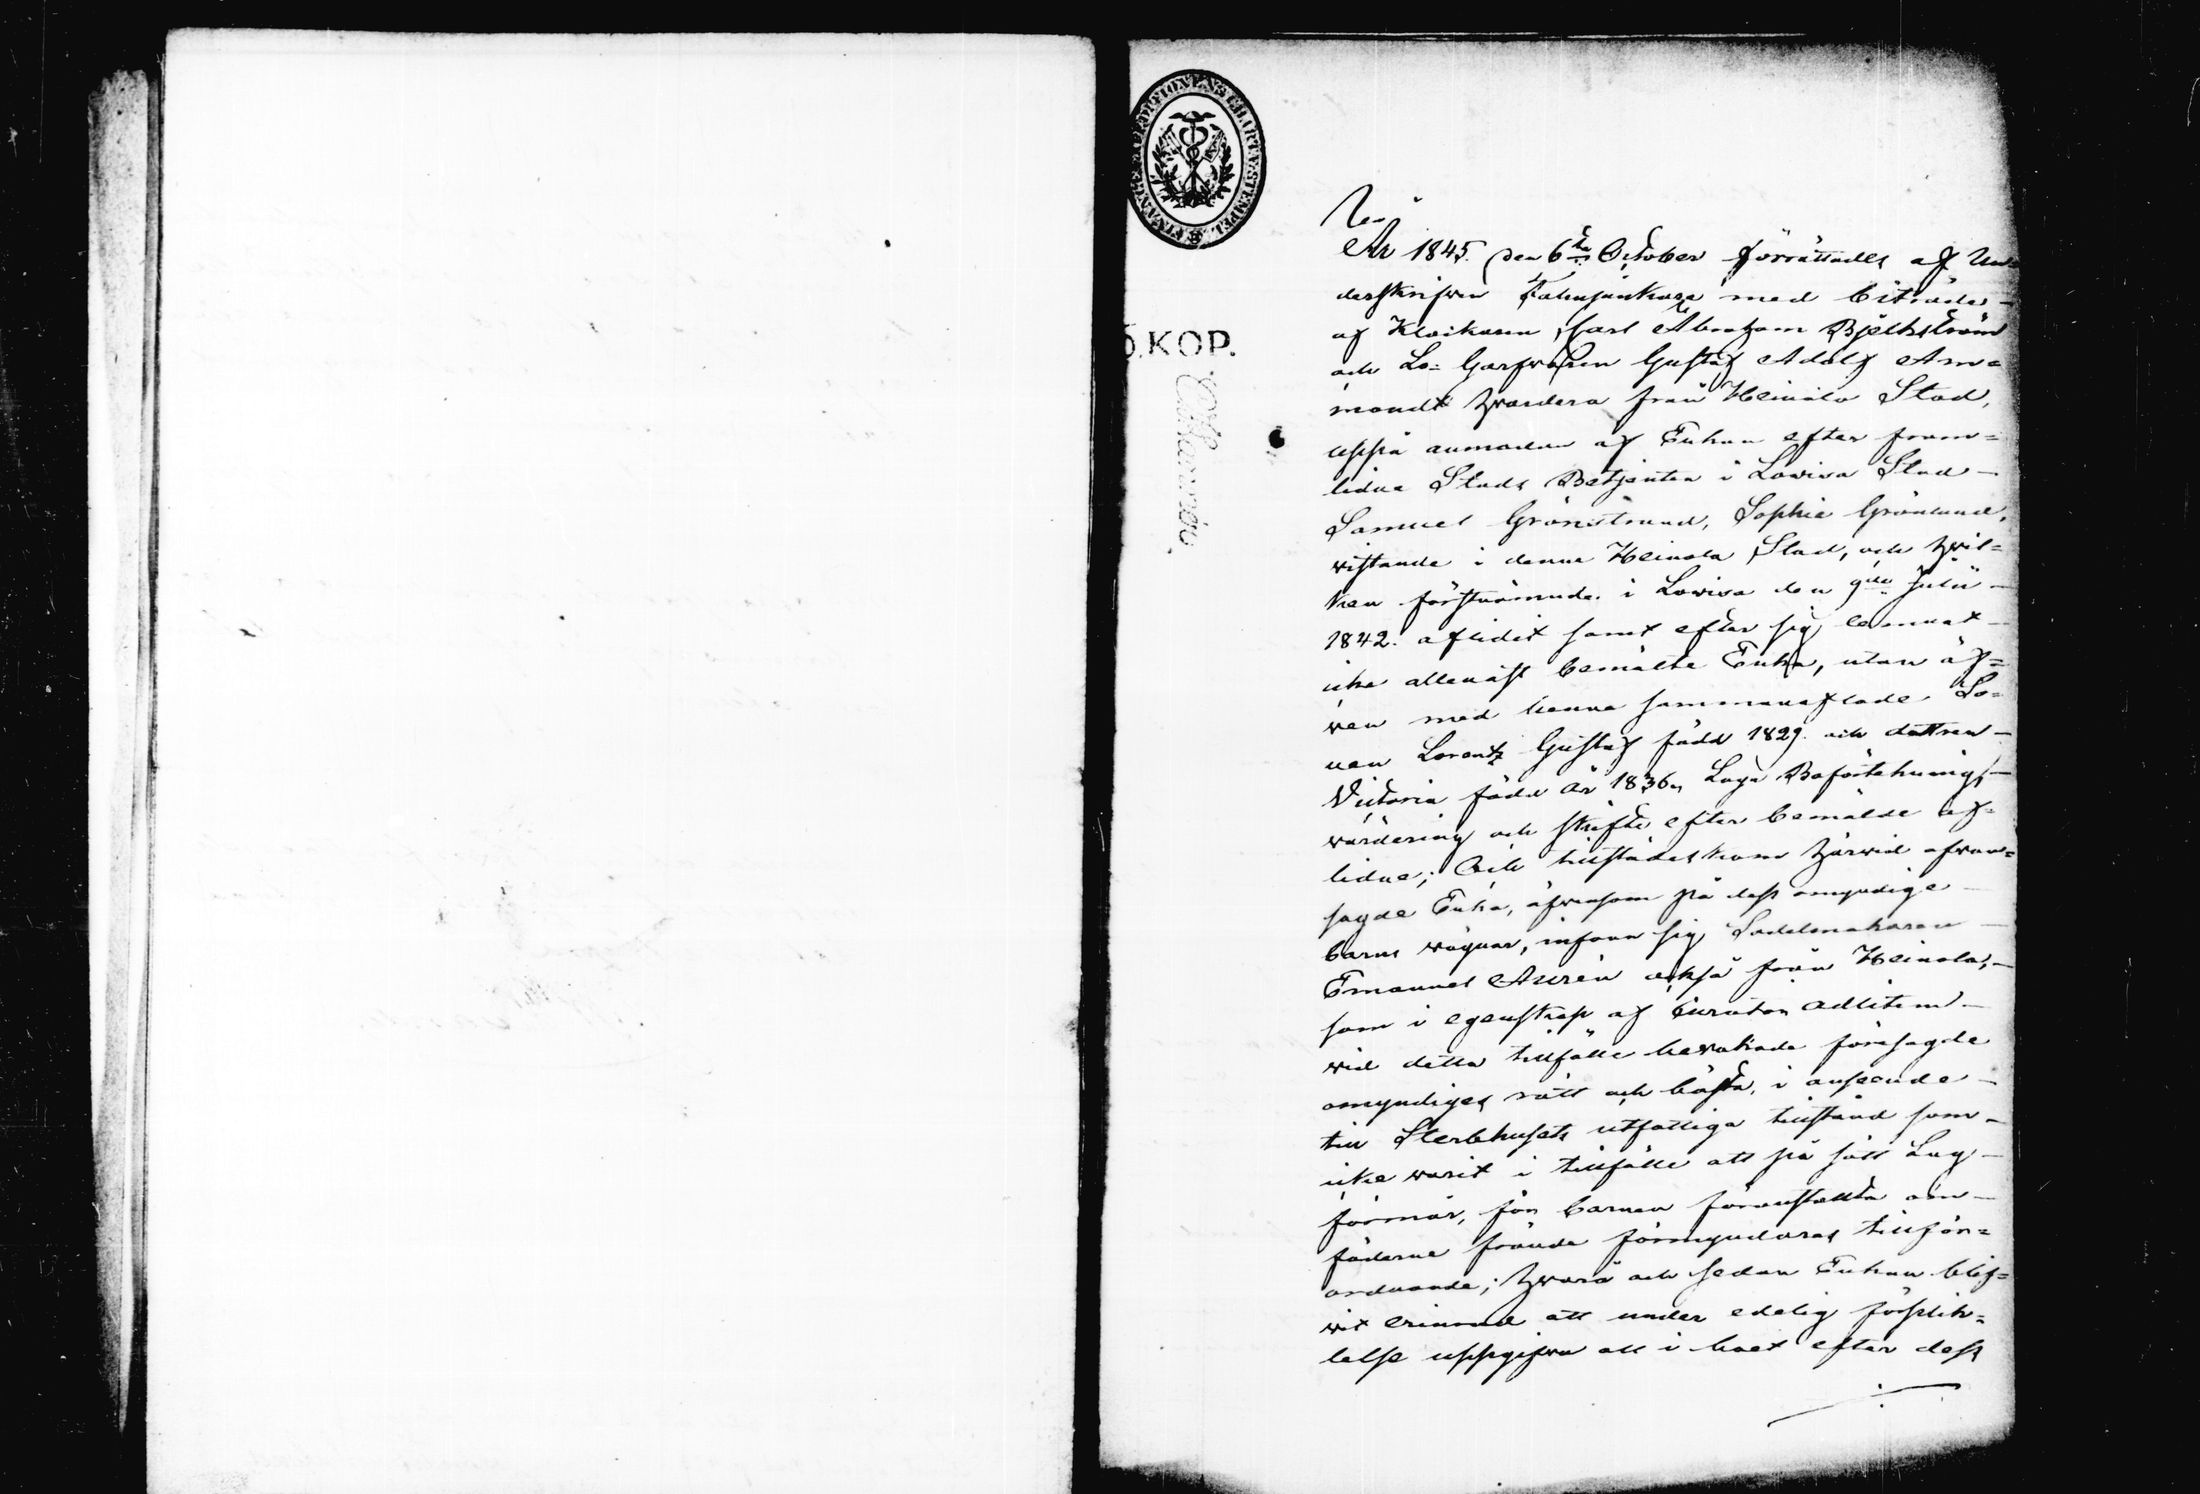 FINANCE EXPEDITIONENS CHARTÆ STEMPEL
5.KOP.
År 1845. den 6te October förrättades af Un=
derskrifven med biträde
af Klockaren Carl Abraham Björkström
och Lo= Garfvaren Gustaf Adolf Am=
mondt hvardera från Heinola Stad,
uppå anmodan af Enkan efter fram=
lidne Stads Betjenten i Lovisa Stad
Samuel Grönstrand, Sophia Grönlund,
vistande i denna Heinola Stad, och hvil=
ken förstnämnde i Lovisa den 9de Julii
1842. aflidit samt efter sig lemnat
icke allenast bemälte Enka, utan äf=
ven med henne sammanaflade So=
nen Lorentz Gustaf född 1829. och dottren
Victoria född År 1836, Laga Bouppteckning,
värdering och skifte efter bemälde af=
lidne; Och tillstädeskom härvid ofvan=
sagde Enka, äfvensom på dess omyndige
barns vägnar, infann sig Sadelmakaren
Emanuel Aurén också från Heinola,
som i egenskap af Curator adlitem
vid detta tillfälle bevakade föresagde
omyndiges rätt och bästa, i anseende
till Sterbhusets utfattiga tillstånd som
icke varit i tillfälle att på sätt Lag
förmår, för barnen föranstalta om
fäderne frände förmyndares tillför=
ordnande; hvarå och sedan Enkan blif=
vit erinrad att under edelig förplik=
telse uppgifva allt i boet efter dess